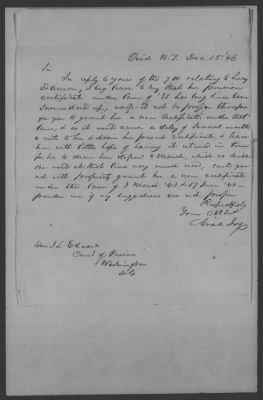 Ovid N.Y. Dec 15 '46
Sir
In reply to yours of the 7th relating to Lucy
I beg leave to say that her pension
certificate under Law of '38 has long since been
surrendered up, would it not be proper therefore
for you to grant her a new certificate under that
Law, as it would cause a delay of several months
to write to her & obtain her former certificate & leave
her with little hope of having it returned in time
for her to draw her deposit March, which no doubt
she will at that time very much need, could you
not with propriety grant her a new certificate
under the Laws of 3 March '43 & 17 June '44
pardon me if my suggestions are not proper
Respectfully
Your
Hon J L Edwards
Com of Pensions
Washington
D C